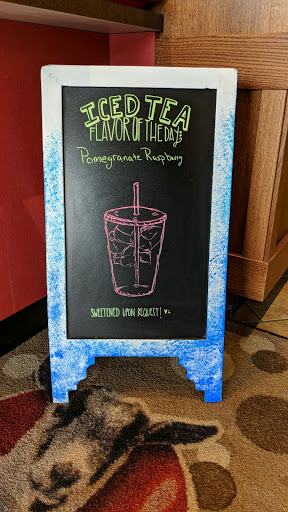 ICED TEA
FLAVOR OF THE DAY:
Pomegranate Raspberry
SWEETENED UPON REQUEST!